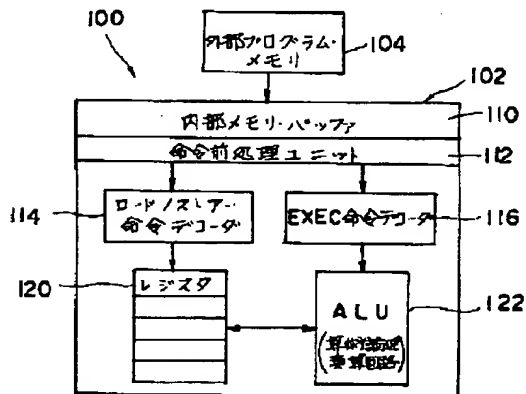 100
外部プログラム・
メモリ
104
102
内部メモリ・バッファ
110
命令前処理ユニット
112
114
ロード/ストアー
命令デコーダ
EXEC命令デコーダ
116
120
レジスタ
ALU
(算術論理
演算回路)
122